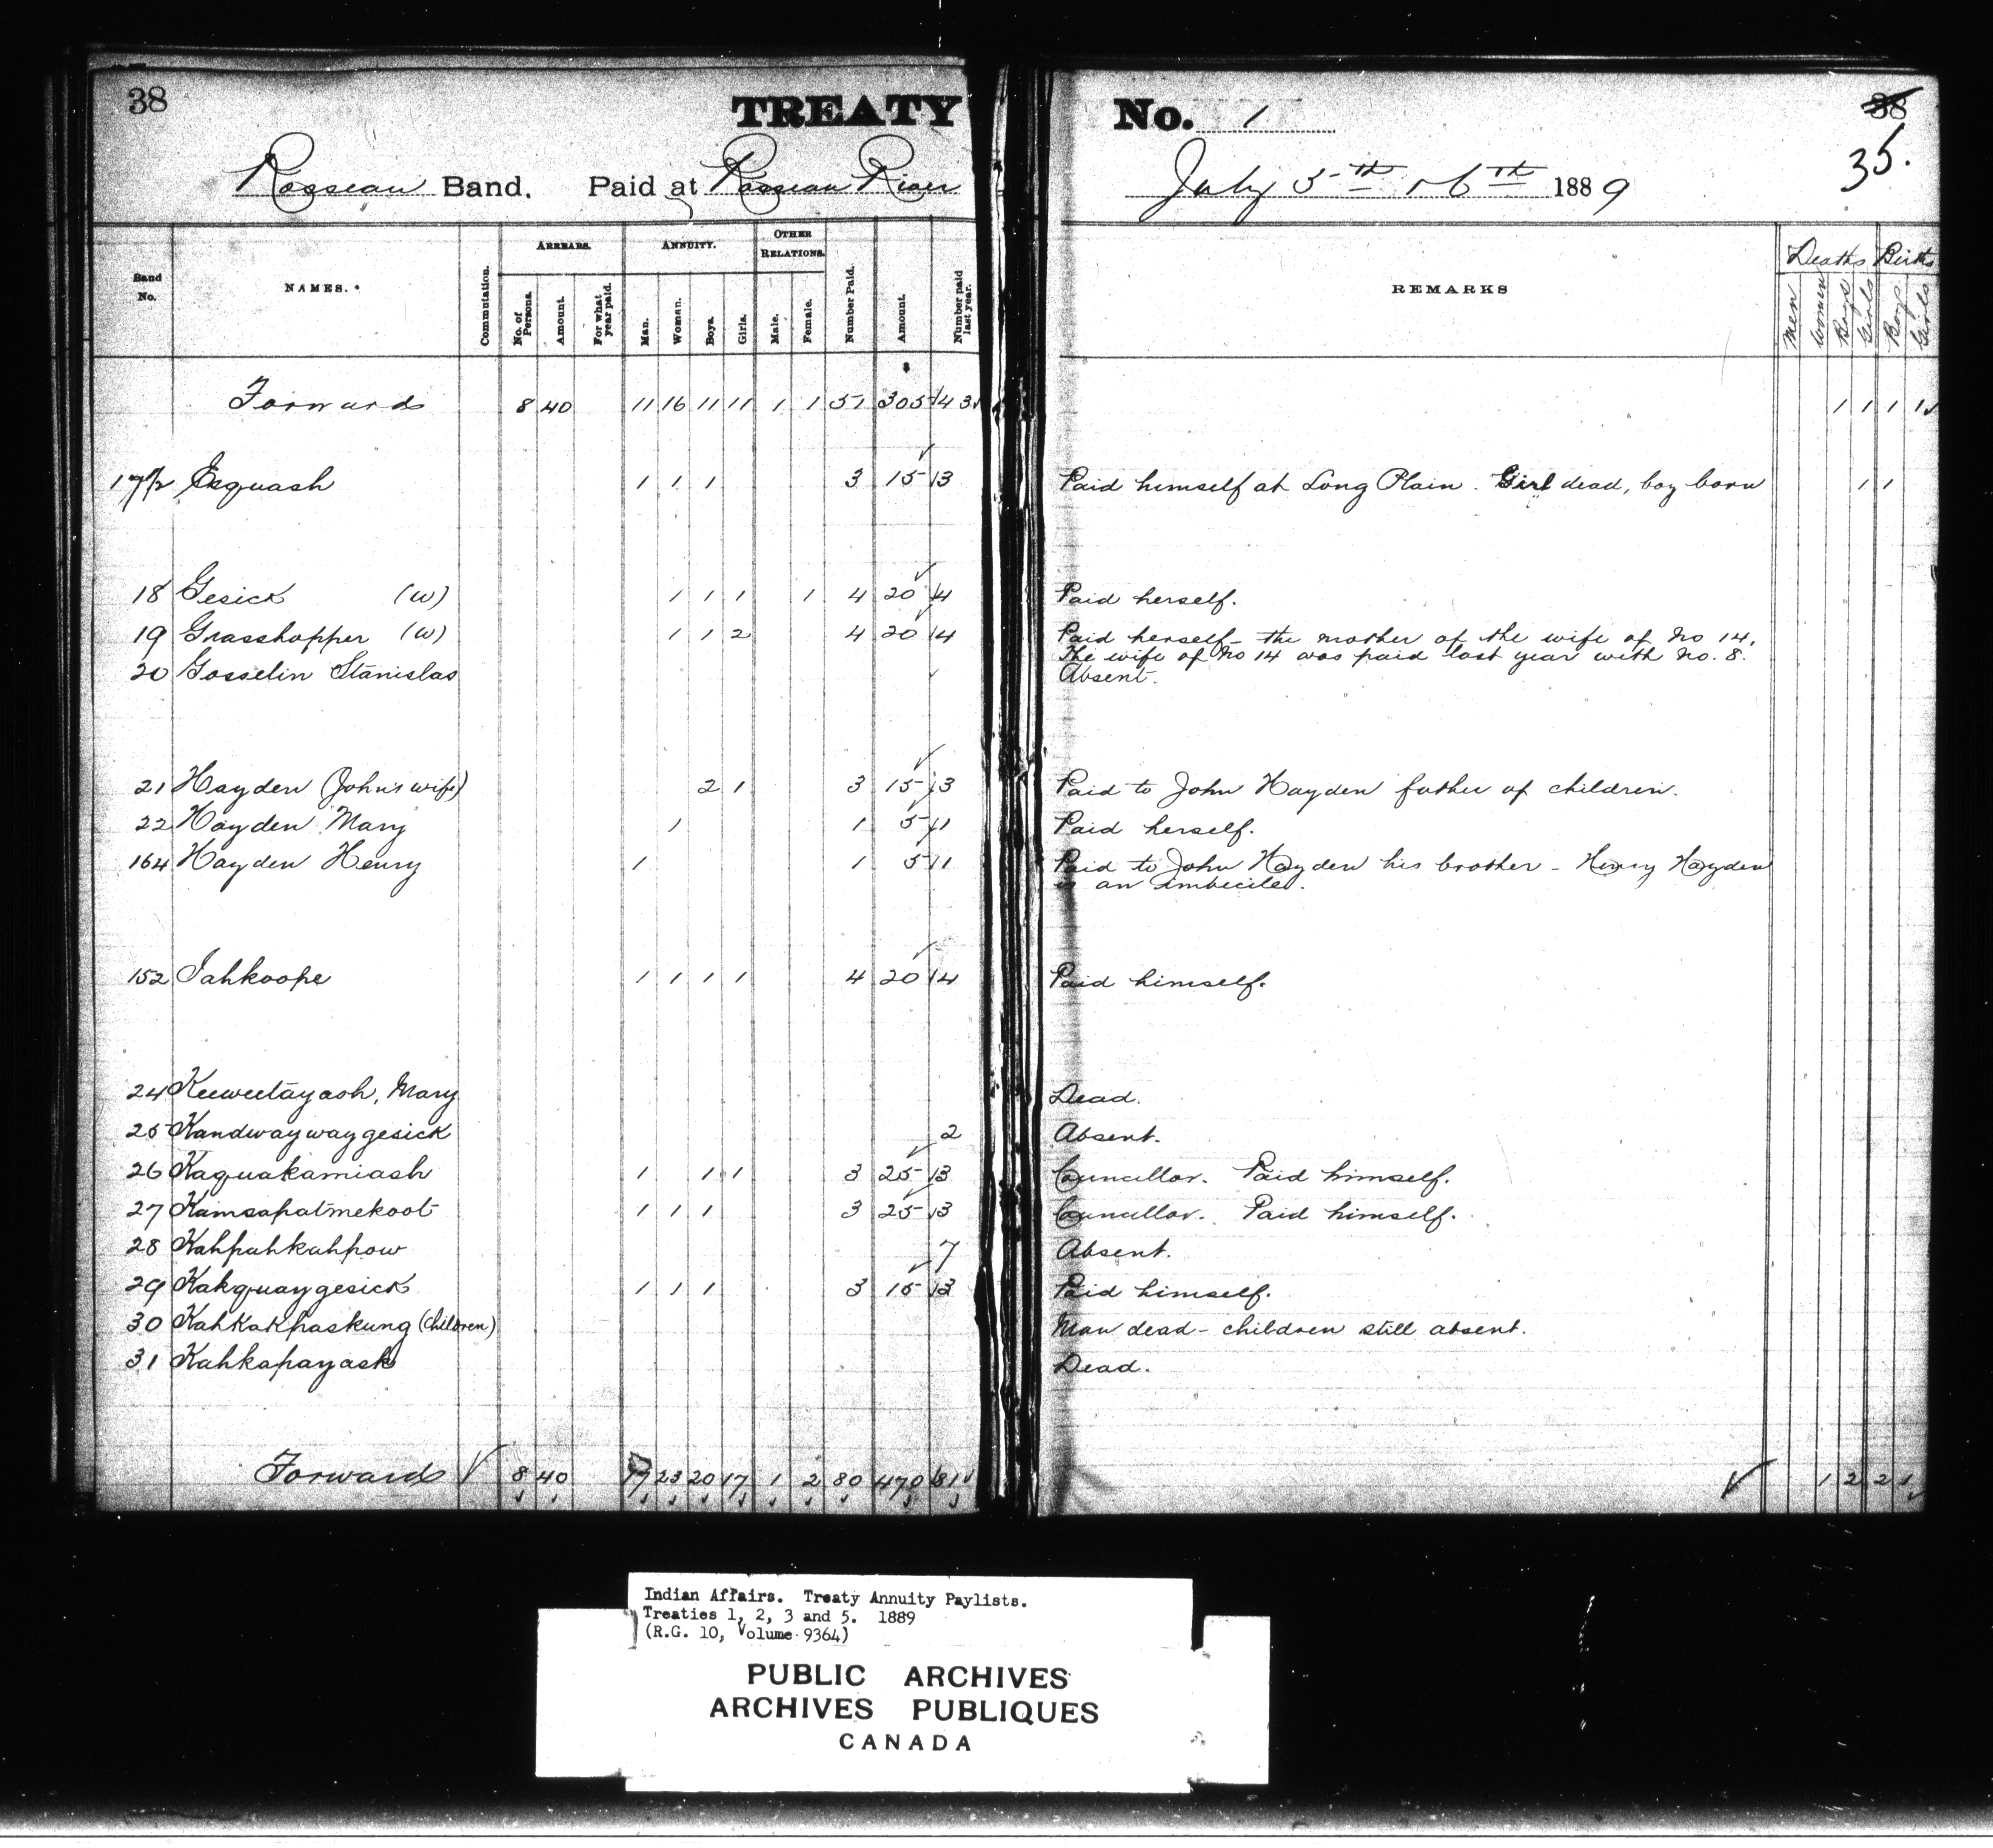 38
TREATY No. 1
38
35.
Rosseau Band. Paid at Rosseau River July 5th & 6th 1889
Band No. NAMES. Commutation. ARREARS. No. of Persons. Amount. For what year paid. ANNUITY. Man. Woman. Boys. Girls. OTHER RELATIONS. Male. Female. Number Paid. Amount. Number paid last year. REMARKS Deaths Men Women Boys Girls Births Boys Girls
$
Forwards 8 40 11 16 11 11 1 1 51 305 43 1 1 1 1
17½ Esquash 1 1 1 3 15 3 Paid himself at Long Plain. Girl dead, boy born 1 1
18 Gesick (W) 1 1 1 1 4 20 4 Paid herself.
19 Grasshopper (W) 1 1 2 4 20 4 Paid herself - the mother of the wife of No 14.
The wife of No 14 was paid last year with No. 8.
20 Gosselin Stanislas Absent.
21 Hayden (John's wife) 2 1 3 15 3 Paid to John Hayden father of children.
22 Hayden Mary 1 1 5 1 Paid herself.
164 Hayden Henry 1 1 5 1 Paid to John Hayden his brother - Henry Hayden
is an imbecile.
152 Jahkoope 1 1 1 1 4 20 4 Paid himself.
24 Keeweetayash, Mary Dead.
25 Kandwaywaygesick 2 Absent.
26 Kaquakamiash 1 1 1 3 25 3 Councillor. Paid himself.
27 Kamsapatmekoot 1 1 1 3 25 3 Councillor. Paid himself.
28 Kahpahkahpow 7 Absent.
29 Kakquaygesick 1 1 1 3 15 3 Paid himself.
30 Kahkakpaskung (children) Man dead - children still absent.
31 Kahkapayask Dead.
Forwards 8 40 17 23 20 17 1 2 80 470 81 1 2 2 1
Indian Affairs. Treaty Annuity Paylists.
Treaties 1, 2, 3 and 5. 1889
(R.G. 10, Volume 9364)
PUBLIC ARCHIVES
ARCHIVES PUBLIQUES
CANADA